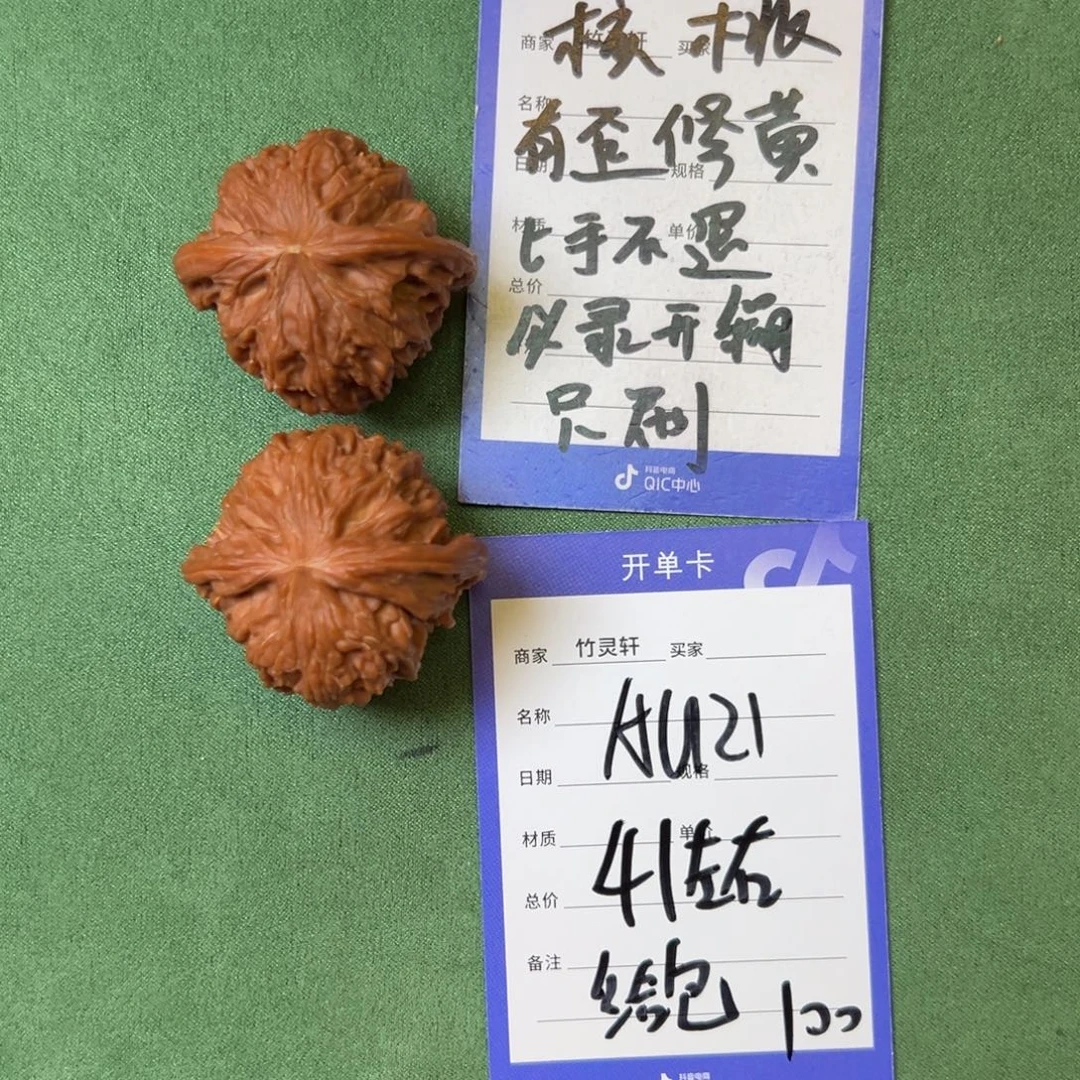 商家 竹灵轩 买家
核桃
名称
有歪修黄
日期 规格
材质 单价
上手不退
总价
必录开视
尺刷
抖音电商
QIC中心
开单卡
商家 竹灵轩 买家
名称
AU21
日期 规格
材质 单价
41左右
总价
备注
结包 100
抖音电商